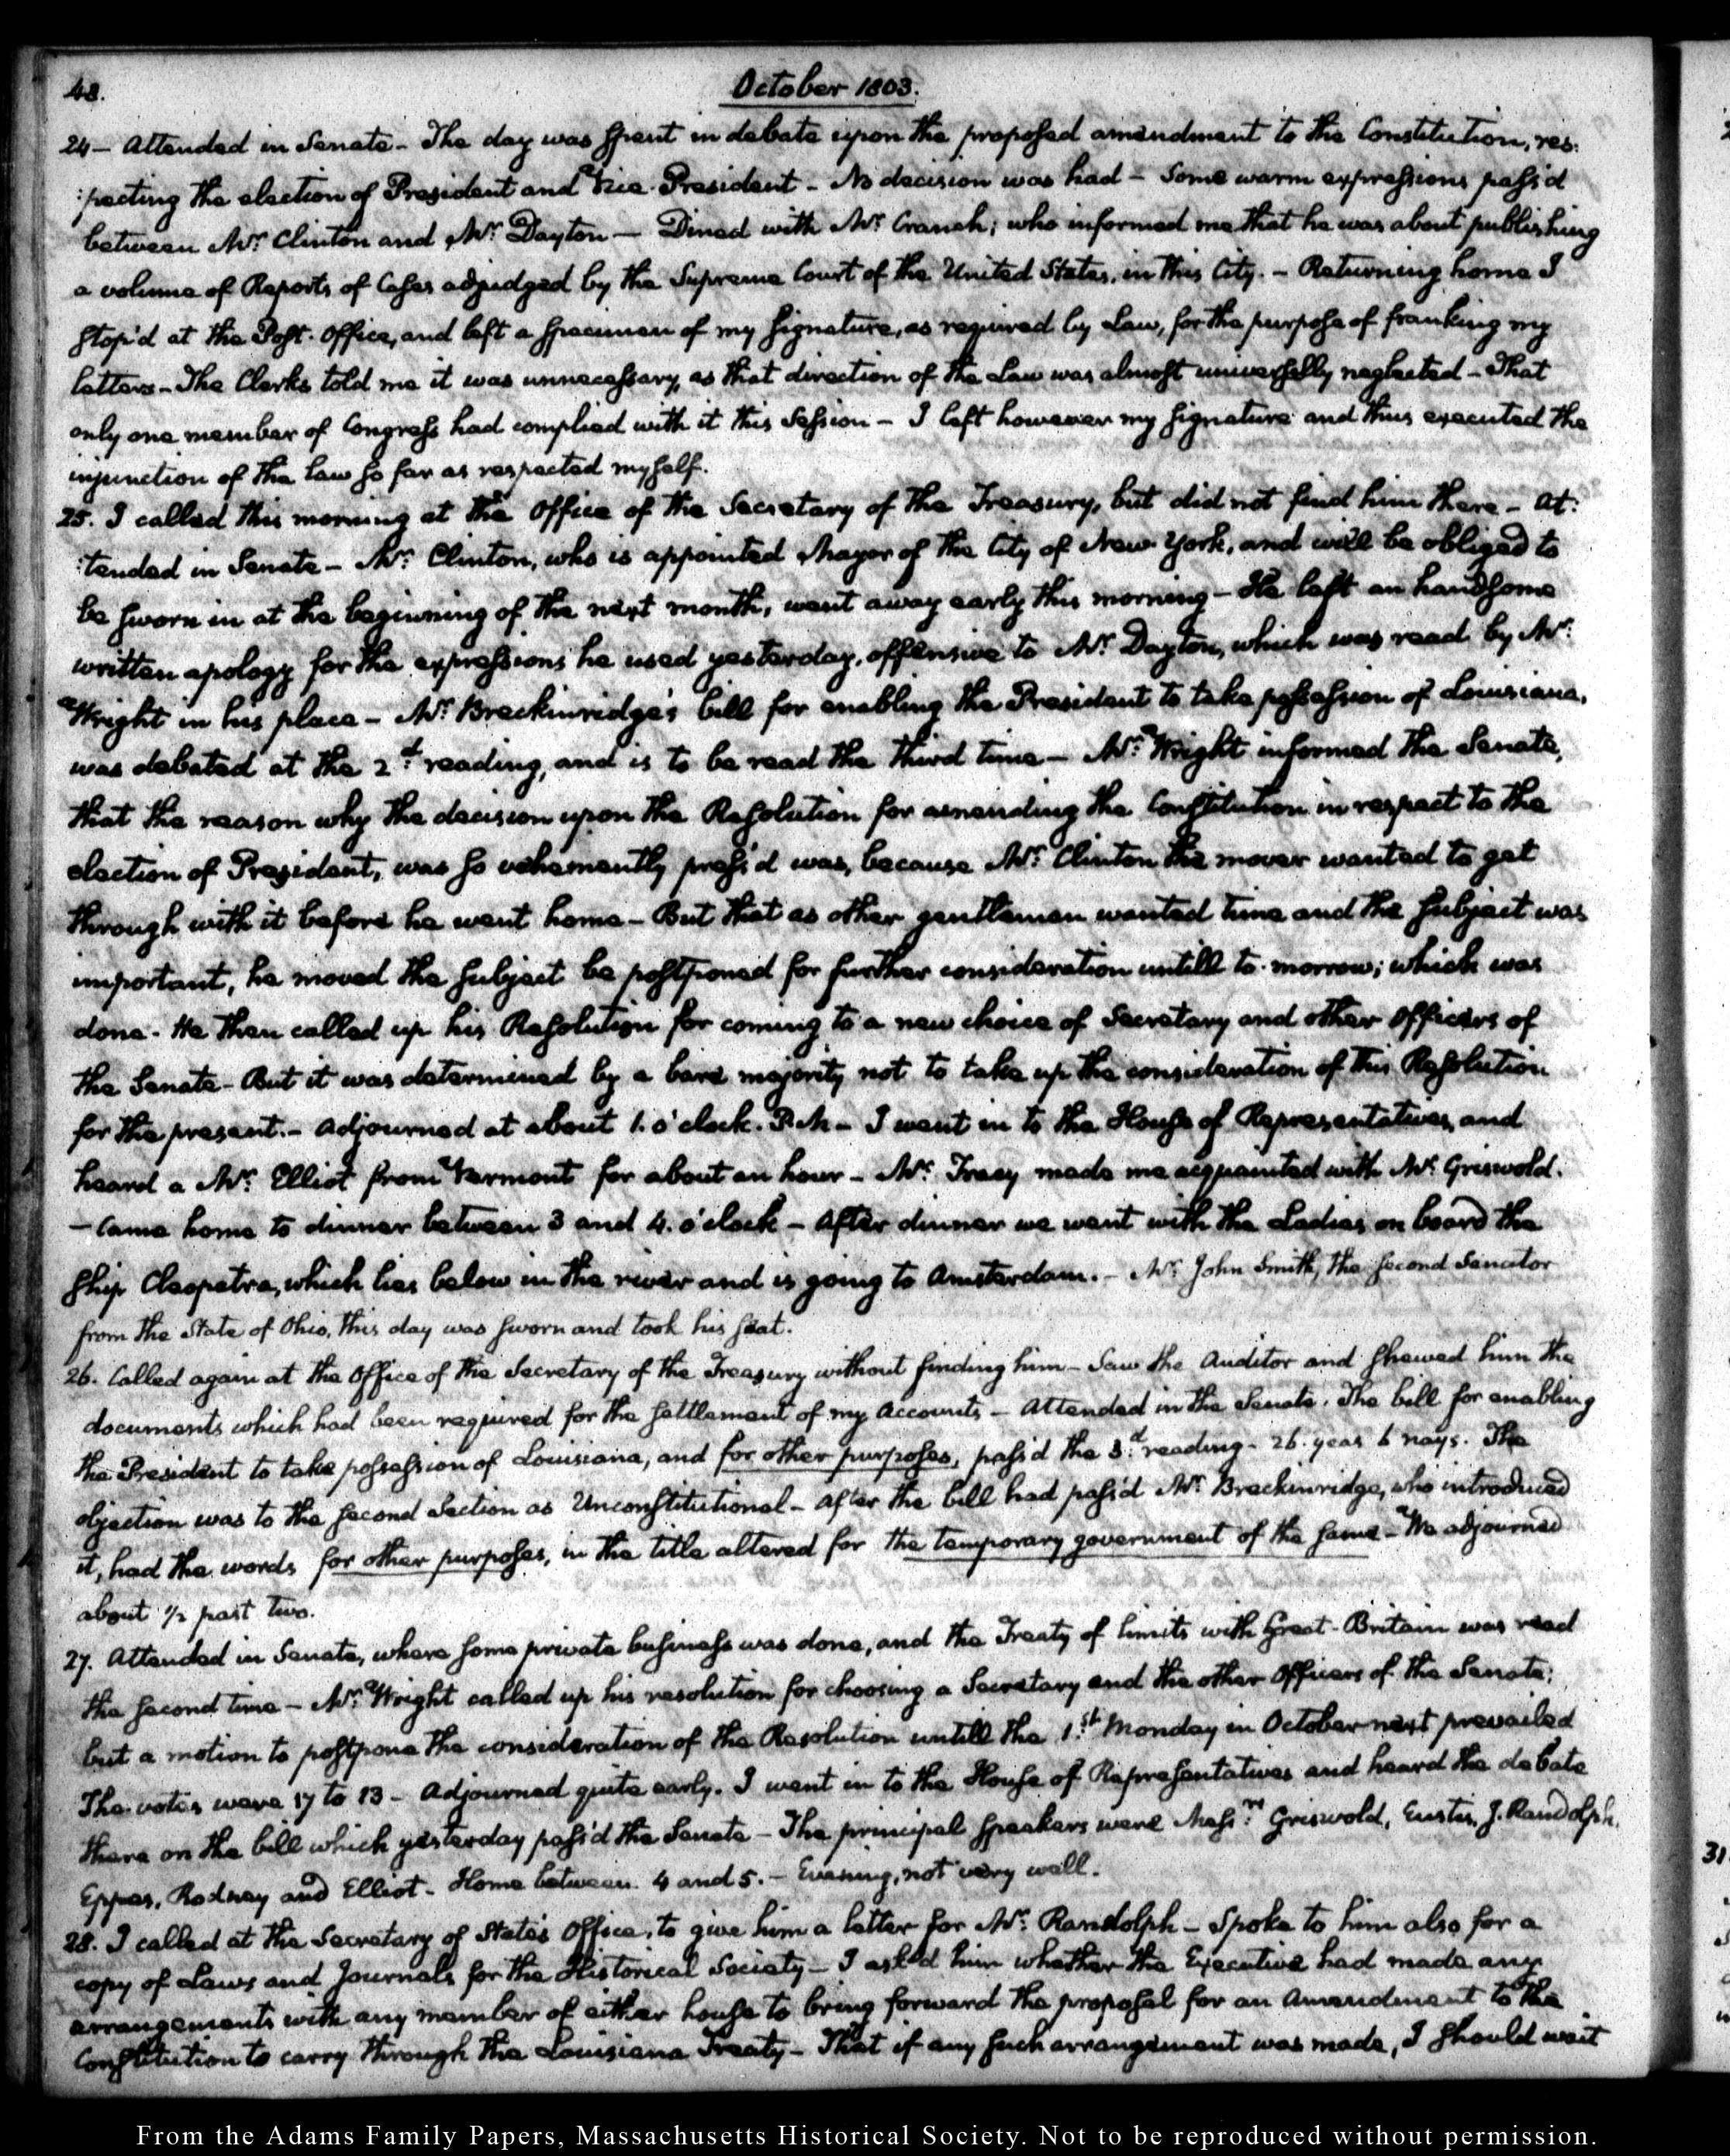 48.
October 1803.
24 – Attended in Senate – The day was spent in debate upon the proposed amendment to the Constitution, res:
:pecting the election of President and Vice-President – No decision was had – Some warm expressions pass'd
between Mr: Clinton and Mr: Dayton – Dined with Mr: Cranch; who informed me that he was about publishing
a volume of Reports of Cases adjudged by the Supreme Court of the United States, in this City. – Returning home I
stop'd at the Post-Office, and left a specimen of my signature, as required by Law, for the purpose of franking my
letters – The Clerks told me it was unnecessary, as that direction of the Law was almost universally neglected – That
only one member of Congress had complied with it this Session – I left however my signature and thus executed the
injunction of the law so far as respected myself.
25. I called this morning at the Office of the Secretary of the Treasury, but did not find him there – At:
:tended in Senate – Mr: Clinton, who is appointed Mayor of the City of New-York, and will be obliged to
be sworn in at the beginning of the next month, went away early this morning – He left an handsome
written apology for the expressions he used yesterday, offensive to Mr: Dayton, which was read by Mr:
Wright in his place – Mr: Breckinridge's bill for enabling the President to take possession of Louisiana,
was debated at the 2d: reading, and is to be read the third time – Mr: Wright informed the Senate,
that the reason why the decision upon the Resolution for amending the Constitution in respect to the
election of President, was so vehemently press'd was, because Mr: Clinton the mover wanted to get
through with it before he went home – But that as other gentlemen wanted time and the subject was
important, he moved the subject be postponed for further consideration untill to-morrow; which was
done. He then called up his Resolution for coming to a new choice of Secretary and other Officers of
the Senate – But it was determined by a bare majority not to take up the consideration of this Resolution
for the present. – Adjourned at about 1. o'clock. P.M – I went in to the House of Representatives, and
heard a Mr: Elliot from Vermont for about an hour – Mr: Tracy made me acquainted with Mr: Griswold.
– Came home to dinner between 3 and 4. o'clock – After dinner we went with the Ladies on board the
ship Cleopatra, which lies below in the river and is going to Amsterdam. – Mr: John Smith, the second Senator
from the State of Ohio, this day was sworn and took his seat.
26. Called again at the Office of the Secretary of the Treasury without finding him – Saw the Auditor and shewed him the
documents which had been required for the settlement of my Accounts – Attended in the Senate. The bill for enabling
the President to take possession of Louisiana, and for other purposes, pass'd the 3d: reading – 26. yeas 6 nays. The
objection was to the second Section as Unconstitutional – After the bill had pass'd Mr: Breckinridge, who introduced
it, had the words for other purposes, in the title altered for the temporary government of the same – We adjourned
about 1/2 past two.
27. Attended in Senate, where some private business was done, and the Treaty of limits with Great-Britain was read
the second time – Mr: Wright called up his resolution for choosing a Secretary and the other Officers of the Senate;
but a motion to postpone the consideration of the Resolution untill the 1st: Monday in October next prevailed
The votes were 17 to 13 – Adjourned quite early. I went in to the House of Representatives and heard the debate
there on the bill which yesterday pass'd the Senate – The principal speakers were Messrs: Griswold, Eustis, J. Randolph,
Eppes, Rodney and Elliot – Home between 4 and 5. – Evening, not very well.
28. I called at the Secretary of State's Office, to give him a letter for Mr: Randolph – Spoke to him also for a
copy of Laws and Journals for the Historical Society – I ask'd him whether the Executive had made any
arrangements with any member of either house to bring forward the proposal for an Amendment to the
Constitution to carry through the Louisiana Treaty – That if any such arrangement was made, I should wait
31
From the Adams Family Papers, Massachusetts Historical Society. Not to be reproduced without permission.